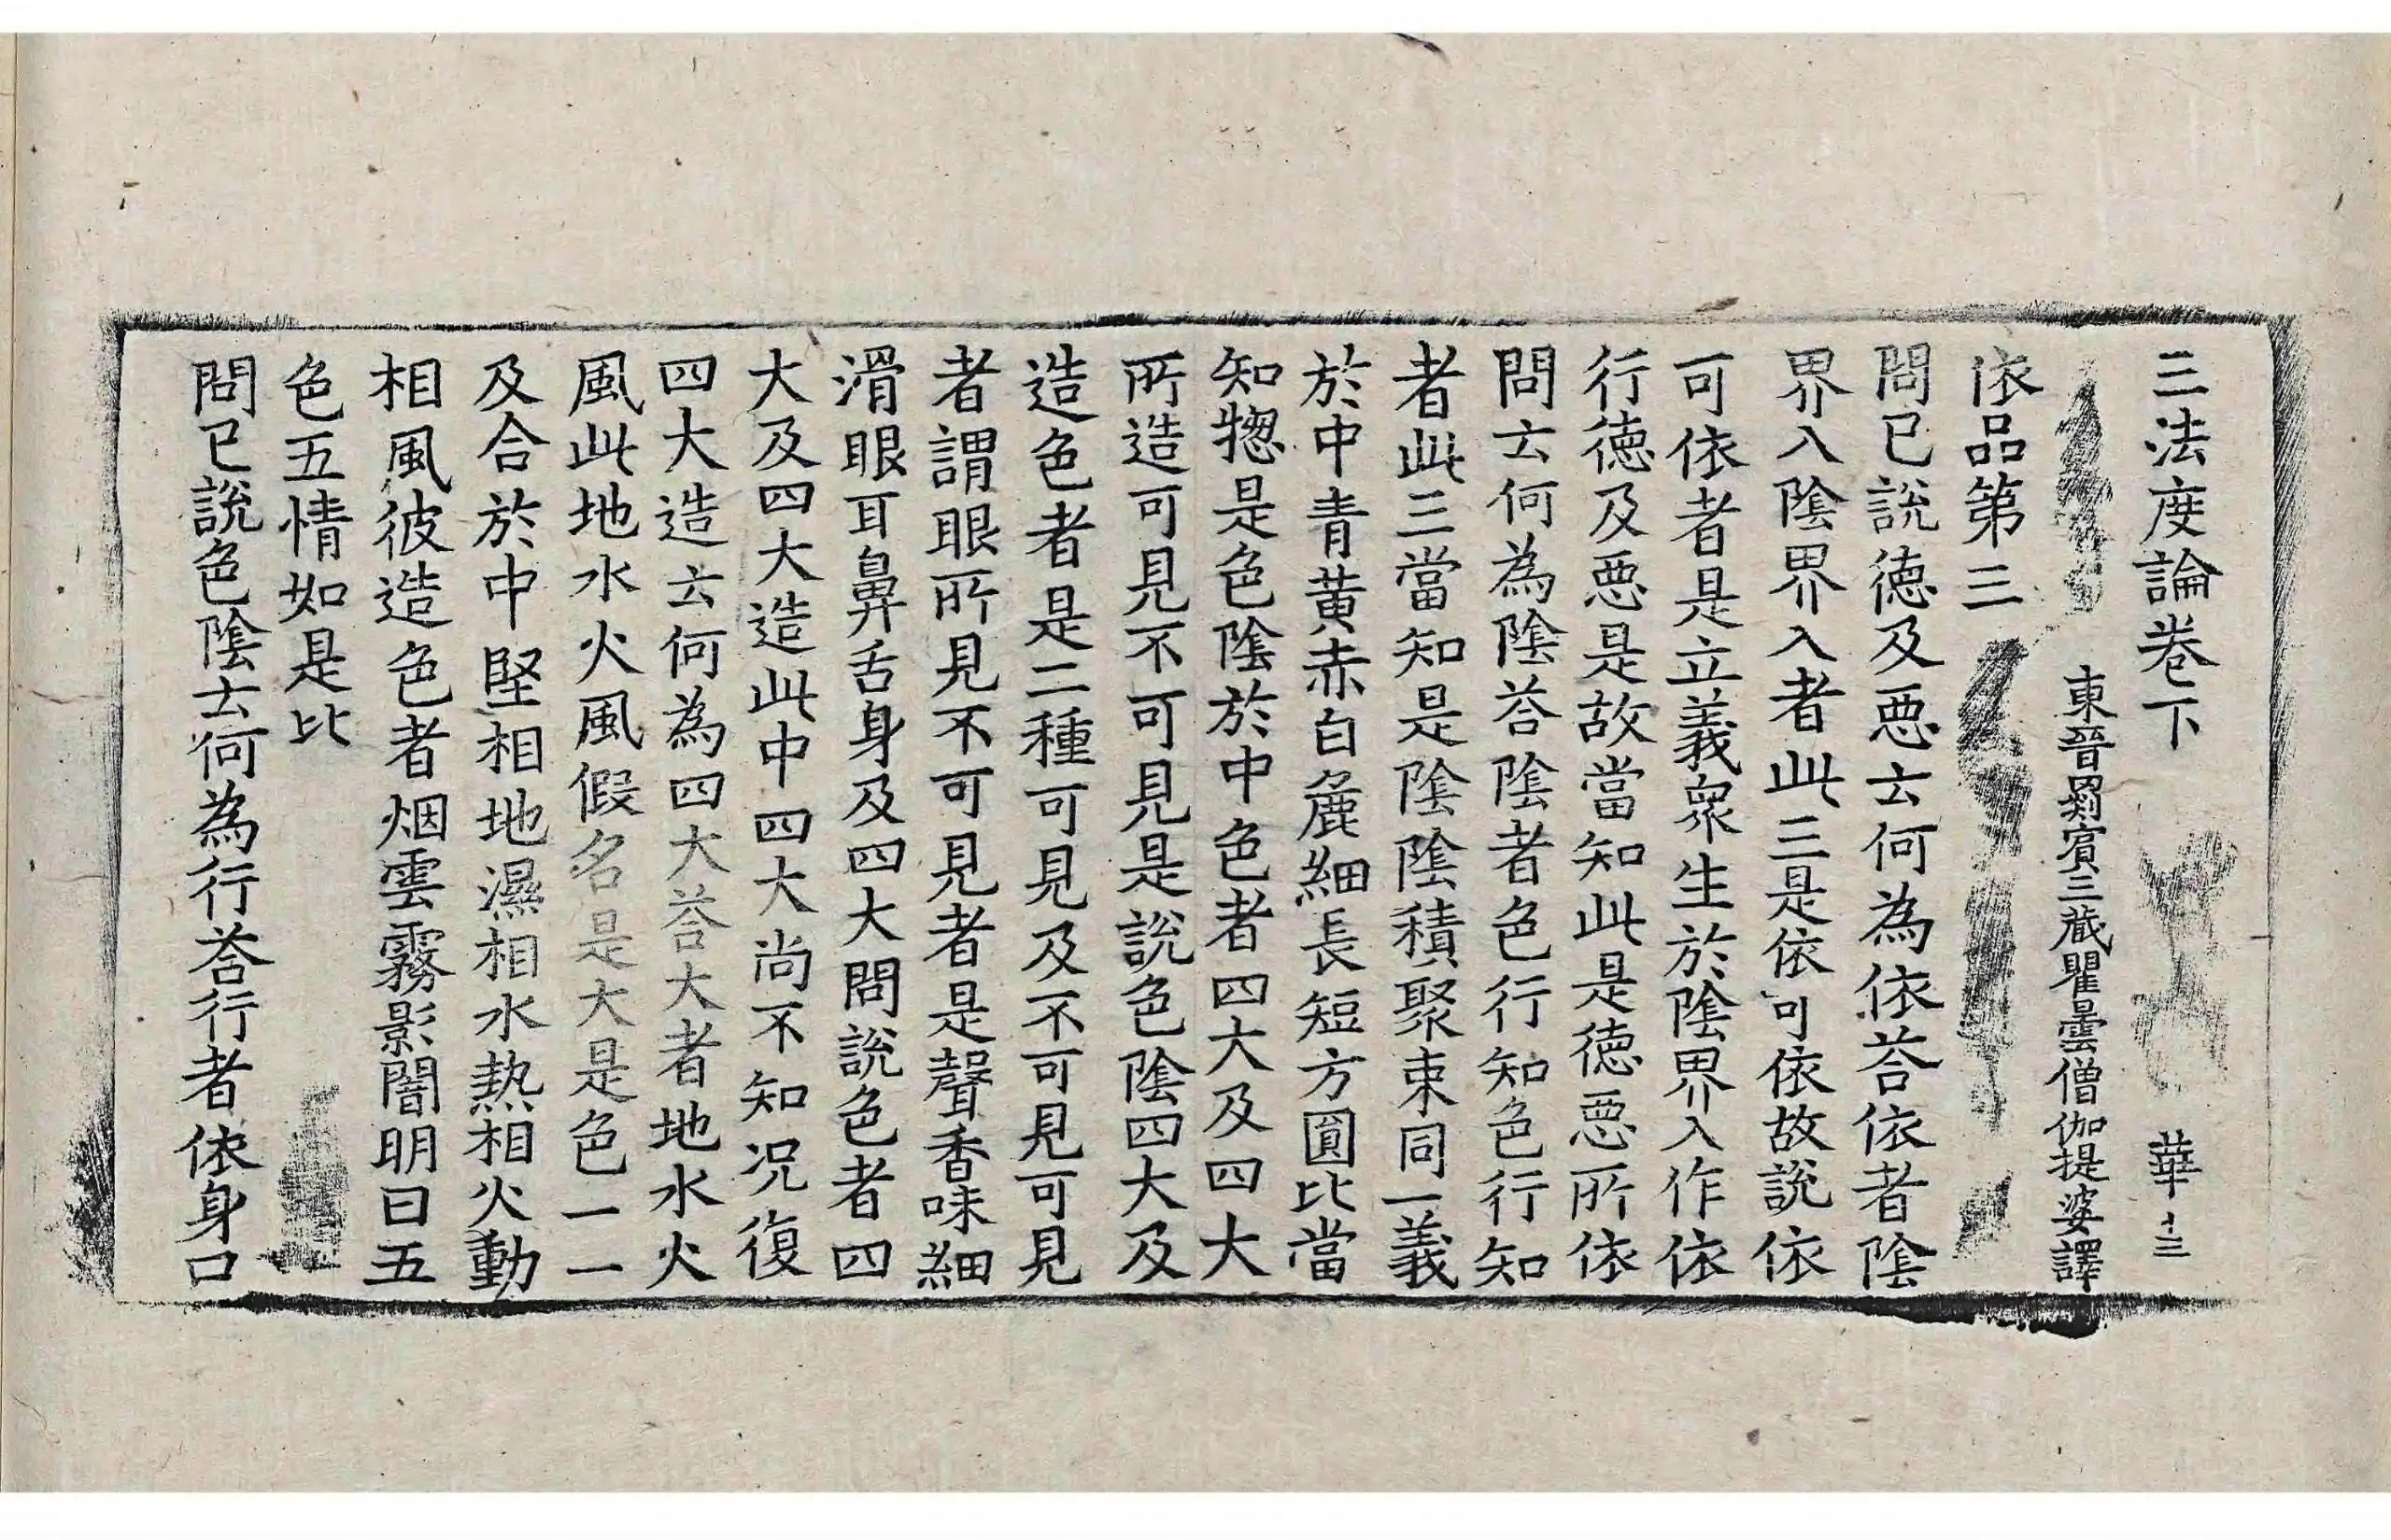 三法度論卷下　華　十三
東晉罽賓三藏瞿曇僧伽提婆譯
依品第三
問已說德及惡云何為依荅依者陰
界入陰界入者此三是依可依故說依
可依者是立義衆生於陰界入作依
行德及惡是故當知此是德惡所依
問云何為陰荅陰者色行知色行知
者此三當知是陰陰積聚束同一義
於中青黃赤白麁細長短方圓比當
知惣是色陰於中色者四大及四大
所造可見不可見是說色陰四大及
造色者是二種可見及不可見可見
者謂眼所見不可見者是聲香味細
滑眼耳鼻舌身及四大問說色者四
大及四大造此中四大尚不知况復
四大造云何為四大荅大者地水火
風此地水火風假名是大是色一一
及合於中堅相地濕相水熱相火動
相風彼造色者烟雲霧影闇明曰五
色五情如是比
問已說色陰云何為行荅行者依身口